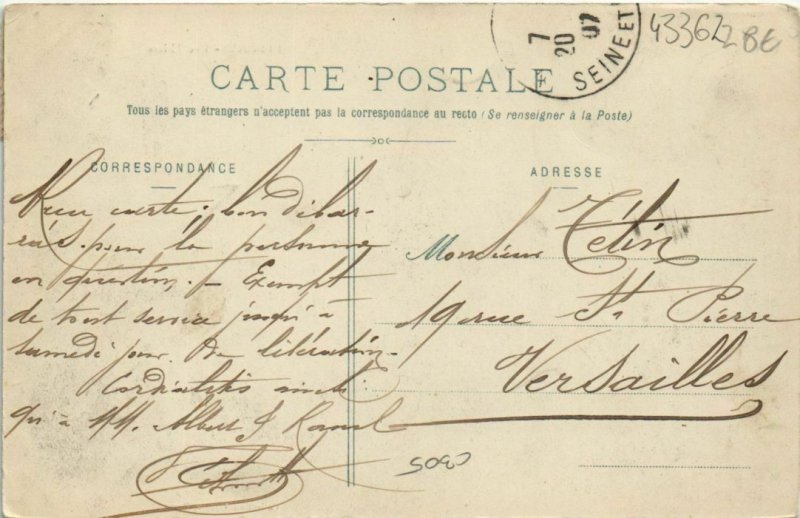 433622 BE
7
20
07
SEINE ET
CARTE POSTALE
Tous les pays étrangers n'acceptent pas la correspondance au recto (Se renseigner à la Poste)
CORRESPONDANCE
carte, bon débar-
ras pour la personne
en question. — Exempt
de tout service jusqu'à
samedi jour de libération.
Cordialités
qu'à MM. Albert &
ADRESSE
Monsieur Tétin
19 rue St Pierre
Versailles
5080